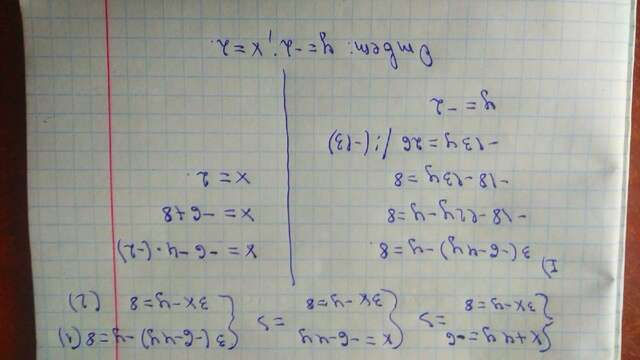 {x+4y=-6 => {x=-6-4y => {3(-6-4y)-y=8 (1)
{3x-y=8 {3x-y=8 {3x-y=8 (2)
1)
3(-6-4y)-y=8
-18-12y-y=8
-18-13y=8
-13y=26 /:(-13)
y=-2
x=-6-4·(-2)
x=-6+8
x=2
Ответ: y=-2; x=2.